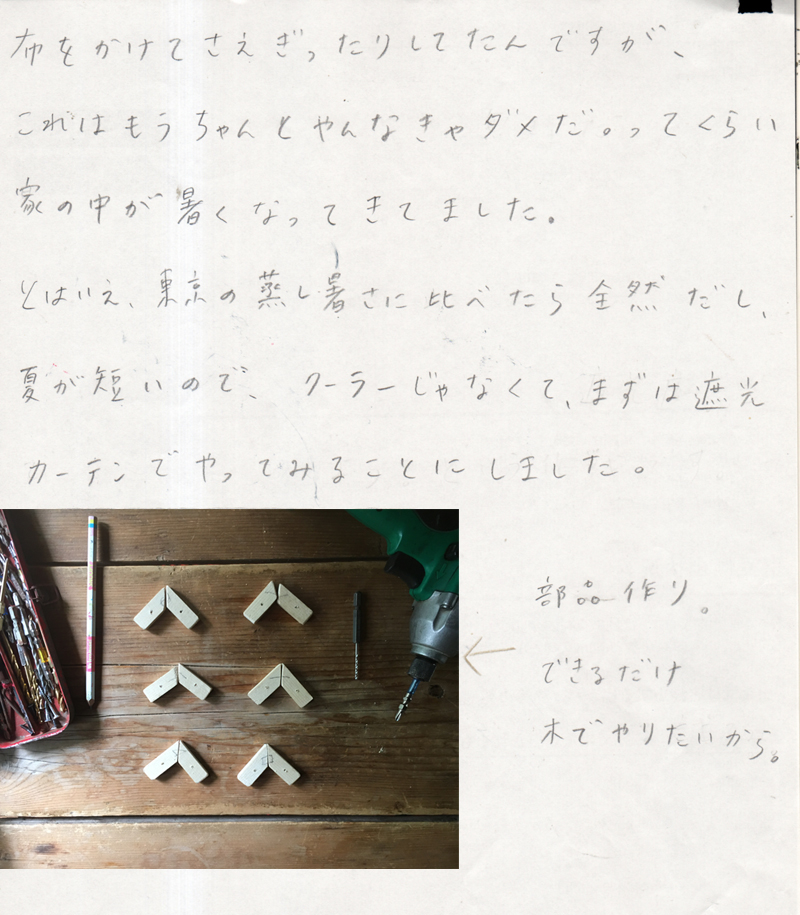 布をかけてさえぎったりしてたんですが、
これはもうちゃんとやんなきゃダメだ。ってくらい
家の中が暑くなってきてました。
とはいえ、東京の蒸し暑さに比べたら全然だし、
夏が短いので、クーラーじゃなくて、まずは遮光
カーテンでやってみることにしました。
部品作り。
できるだけ
木でやりたいから。